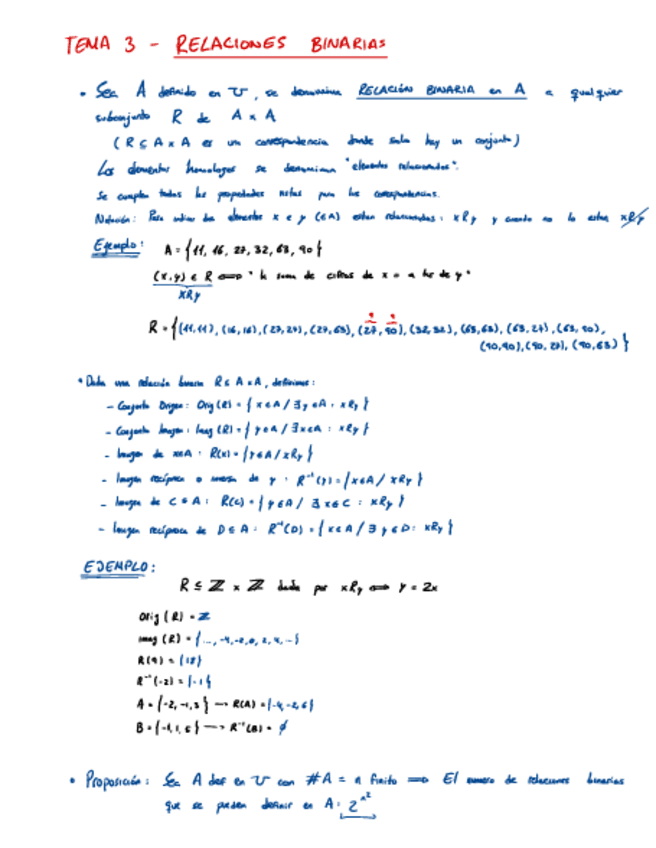 TEMA 3 - RELACIONES BINARIAS
• Sea A definido en U, se denomina RELACIÓN BINARIA en A a cualquier
subconjunto R de A x A
(R ⊆ A x A es una correspondencia donde solo hay un conjunto)
Los elementos homologos se denominan "elementos relacionados".
Se cumplen todas las propiedades vistas para las correspondencias.
Notación: Para indicar dos elementos x e y (∈A) estan relacionados: xRy y cuando no lo estan xR̸y
Ejemplo: A = {11, 16, 27, 32, 63, 90}
(x,y) ∈ R ⟺ "la suma de cifras de x = a la de y"
xRy
9 9
R = {(11,11), (16,16), (27,27), (27,63), (27,90), (32,32), (63,63), (63,27), (63,90),
(90,90), (90,27), (90,63)}
• Dada una relación binaria R ⊆ A x A, definimos:
- Conjunto Origen: Orig(R) = {x∈A / ∃y∈A : xRy}
- Conjunto Imagen: Imag(R) = {y∈A / ∃x∈A : xRy}
- Imagen de x∈A : R(x) = {y∈A / xRy}
- Imagen recíproca o inversa de y : R⁻¹(y) = {x∈A / xRy}
- Imagen de C ⊆ A : R(C) = {y∈A / ∃x∈C : xRy}
- Imagen recíproca de D ⊆ A : R⁻¹(D) = {x∈A / ∃y∈D : xRy}
EJEMPLO:
R ⊆ ℤ x ℤ dada por xRy ⟺ y = 2x
Orig (R) = ℤ
Imag (R) = {..., -4, -2, 0, 2, 4, ...}
R(9) = {18}
R⁻¹(-2) = {-1}
A = {-2, -1, 3} → R(A) = {-4, -2, 6}
B = {-1, 1, 5} → R⁻¹(B) = ∅
• Proposición: Sea A def en U con #A = n finito ⟹ El numero de relaciones binarias
que se pueden definir en A: 2^n²